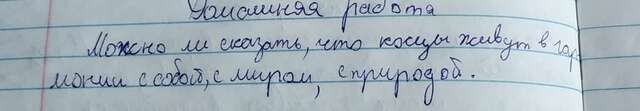 Домашняя работа
Можно ли сказать, что косцы живут в гар
монии с собой, с миром, с природой.